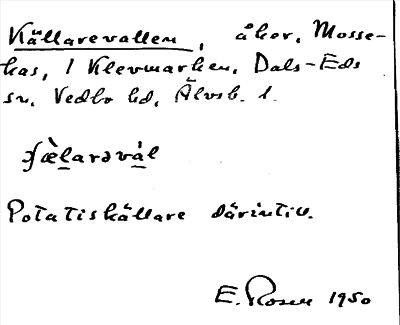 Källarevallen, åker, Mosse-
kas, 1 Klevmarken, Dals-Eds
sn, Vedbo hd, Älvsb. l.
Potatiskällare därintill.
E. Rosen 1950